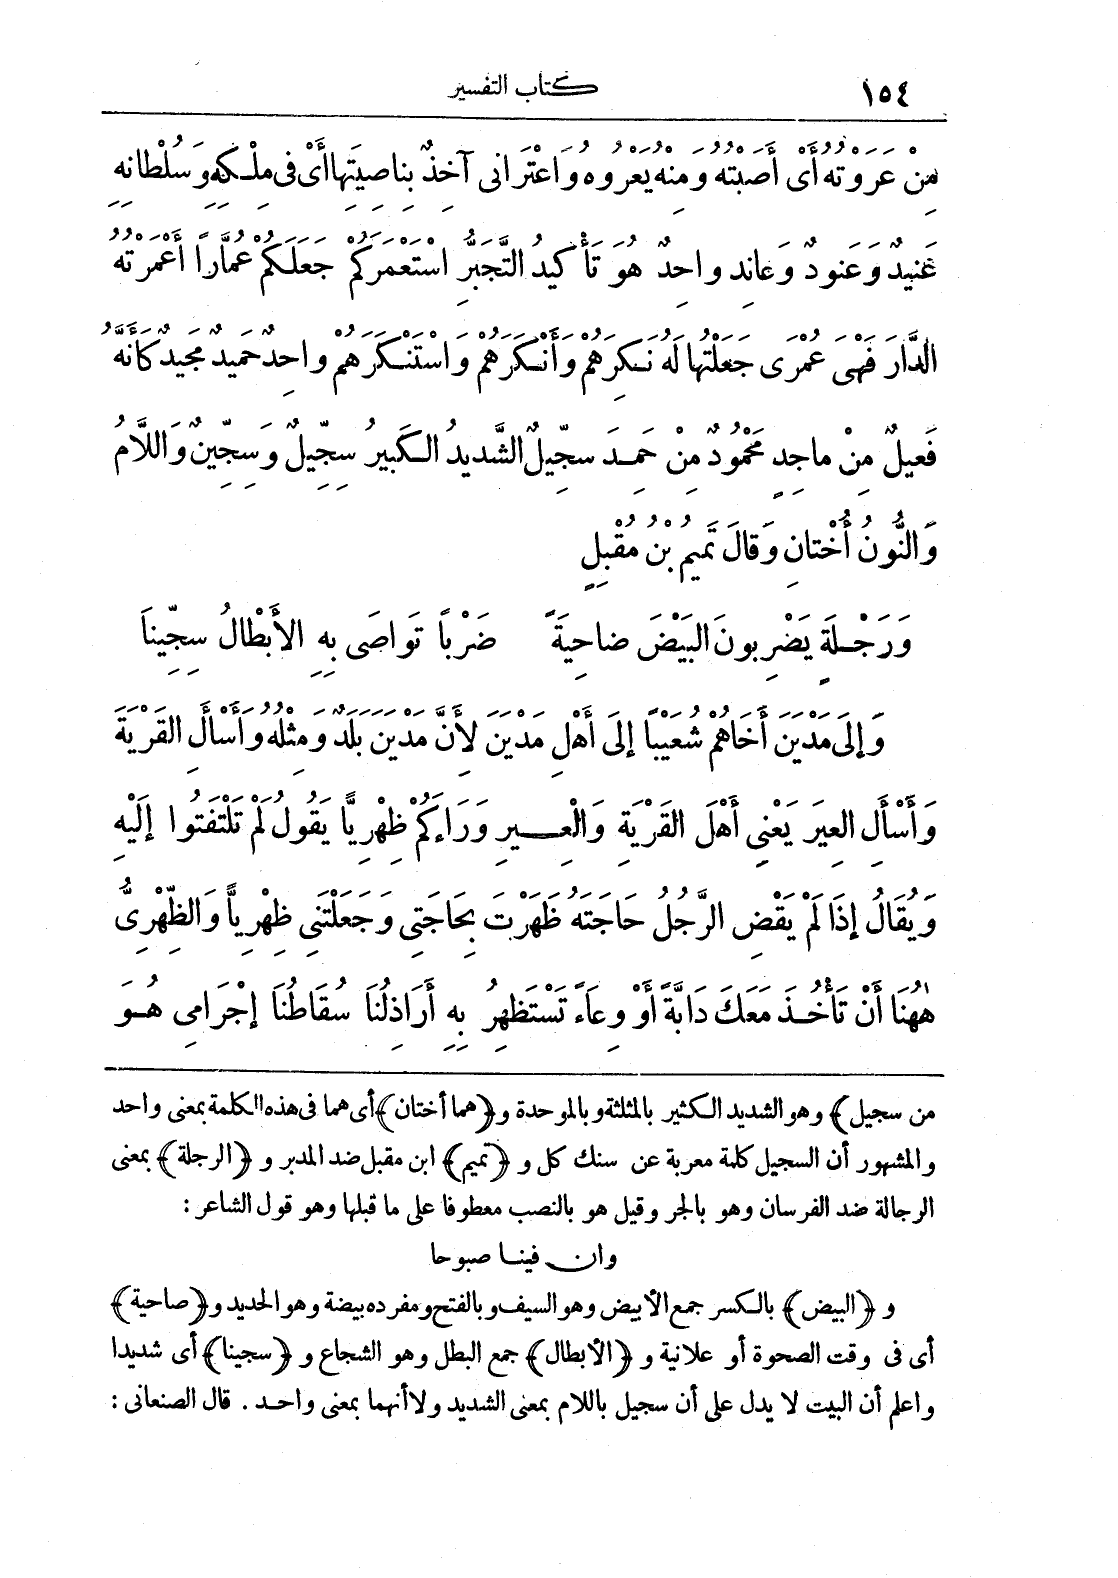 ١٥٤ كتاب التفسير
مِنْ عَرَوْتُهُ أَىْ أَصَبْتُهُ وَمِنْهُ يَعْرُوهُ وَاعْتَرَانِى آخِذٌ بِنَاصِيَتِهَا أَىْ فِى مِلْكِهِ وَسُلْطَانِهِ
عَنِيدٌ وَعَنُودٌ وَعَانِدٌ وَاحِدٌ هُوَ تَأْكِيدُ التَّجَبُّرِ اسْتَعْمَرَكُمْ جَعَلَكُمْ عُمَّارًا أَعْمَرْتُهُ
الدَّارَ فَهْىَ عُمْرَى جَعَلْتُهَا لَهُ نَكِرَهُمْ وَأَنْكَرَهُمْ وَاسْتَنْكَرَهُمْ وَاحِدٌ حَمِيدٌ مَجِيدٌ كَأَنَّهُ
فَعِيلٌ مِنْ مَاجِدٍ مَحْمُودٌ مِنْ حَمِدَ سِجِّيلٌ الشَّدِيدُ الكَبِيرُ سِجِّيلٌ وَسِجِّينٌ وَاللَّامُ
وَالنُّونُ أُخْتَانِ وَقَالَ تَمِيمُ بْنُ مُقْبِلٍ
وَرَجْلَةٍ يَضْرِبُونَ البَيْضَ ضَاحِيَةً ضَرْبًا تَوَاصَى بِهِ الأَبْطَالُ سِجِّينَا
وَإِلَى مَدْيَنَ أَخَاهُمْ شُعَيْبًا إِلَى أَهْلِ مَدْيَنَ لِأَنَّ مَدْيَنَ بَلَدٌ وَمِثْلُهُ وَاسْأَلِ القَرْيَةَ
وَاسْأَلِ العِيرَ يَعْنِى أَهْلَ القَرْيَةِ وَالْعِيرِ وَرَاءَكُمْ ظِهْرِيًّا يَقُولُ لَمْ تَلْتَفِتُوا إِلَيْهِ
وَيُقَالُ إِذَا لَمْ يَقْضِ الرَّجُلُ حَاجَتَهُ ظَهَرْتَ بِحَاجَتِى وَجَعَلْتَنِى ظِهْرِيًّا وَالظِّهْرِىُّ
هٰهُنَا أَنْ تَأْخُذَ مَعَكَ دَابَّةً أَوْ وِعَاءً تَسْتَظْهِرُ بِهِ أَرَاذِلُنَا سُقَاطُنَا إِجْرَامِى هُوَ
من سجيل﴾ وهو الشديد الكثير بالمثلثة وبالموحدة و﴿هما أختان﴾ أى هما فى هذه الكلمة بمعنى واحد
والمشهور أن السجيل كلمة معربة عن سنك كل و ﴿تميم﴾ ابن مقبل ضد المدبر و ﴿الرجلة﴾ بمعنى
الرجالة ضد الفرسان وهو بالجر وقيل هو بالنصب معطوفا على ما قبلها وهو قول الشاعر :
وان فينا صبوحا
و ﴿البيض﴾ بالكسر جمع الأبيض وهو السيف وبالفتح ومفرده بيضة وهو الحديد و﴿صاحية﴾
أى فى وقت الصحوة أو علانية و ﴿الأبطال﴾ جمع البطل وهو الشجاع و ﴿سجينا﴾ أى شديدا
واعلم أن البيت لا يدل على أن سجيل باللام بمعنى الشديد ولا أنهما بمعنى واحد . قال الصنعانى :